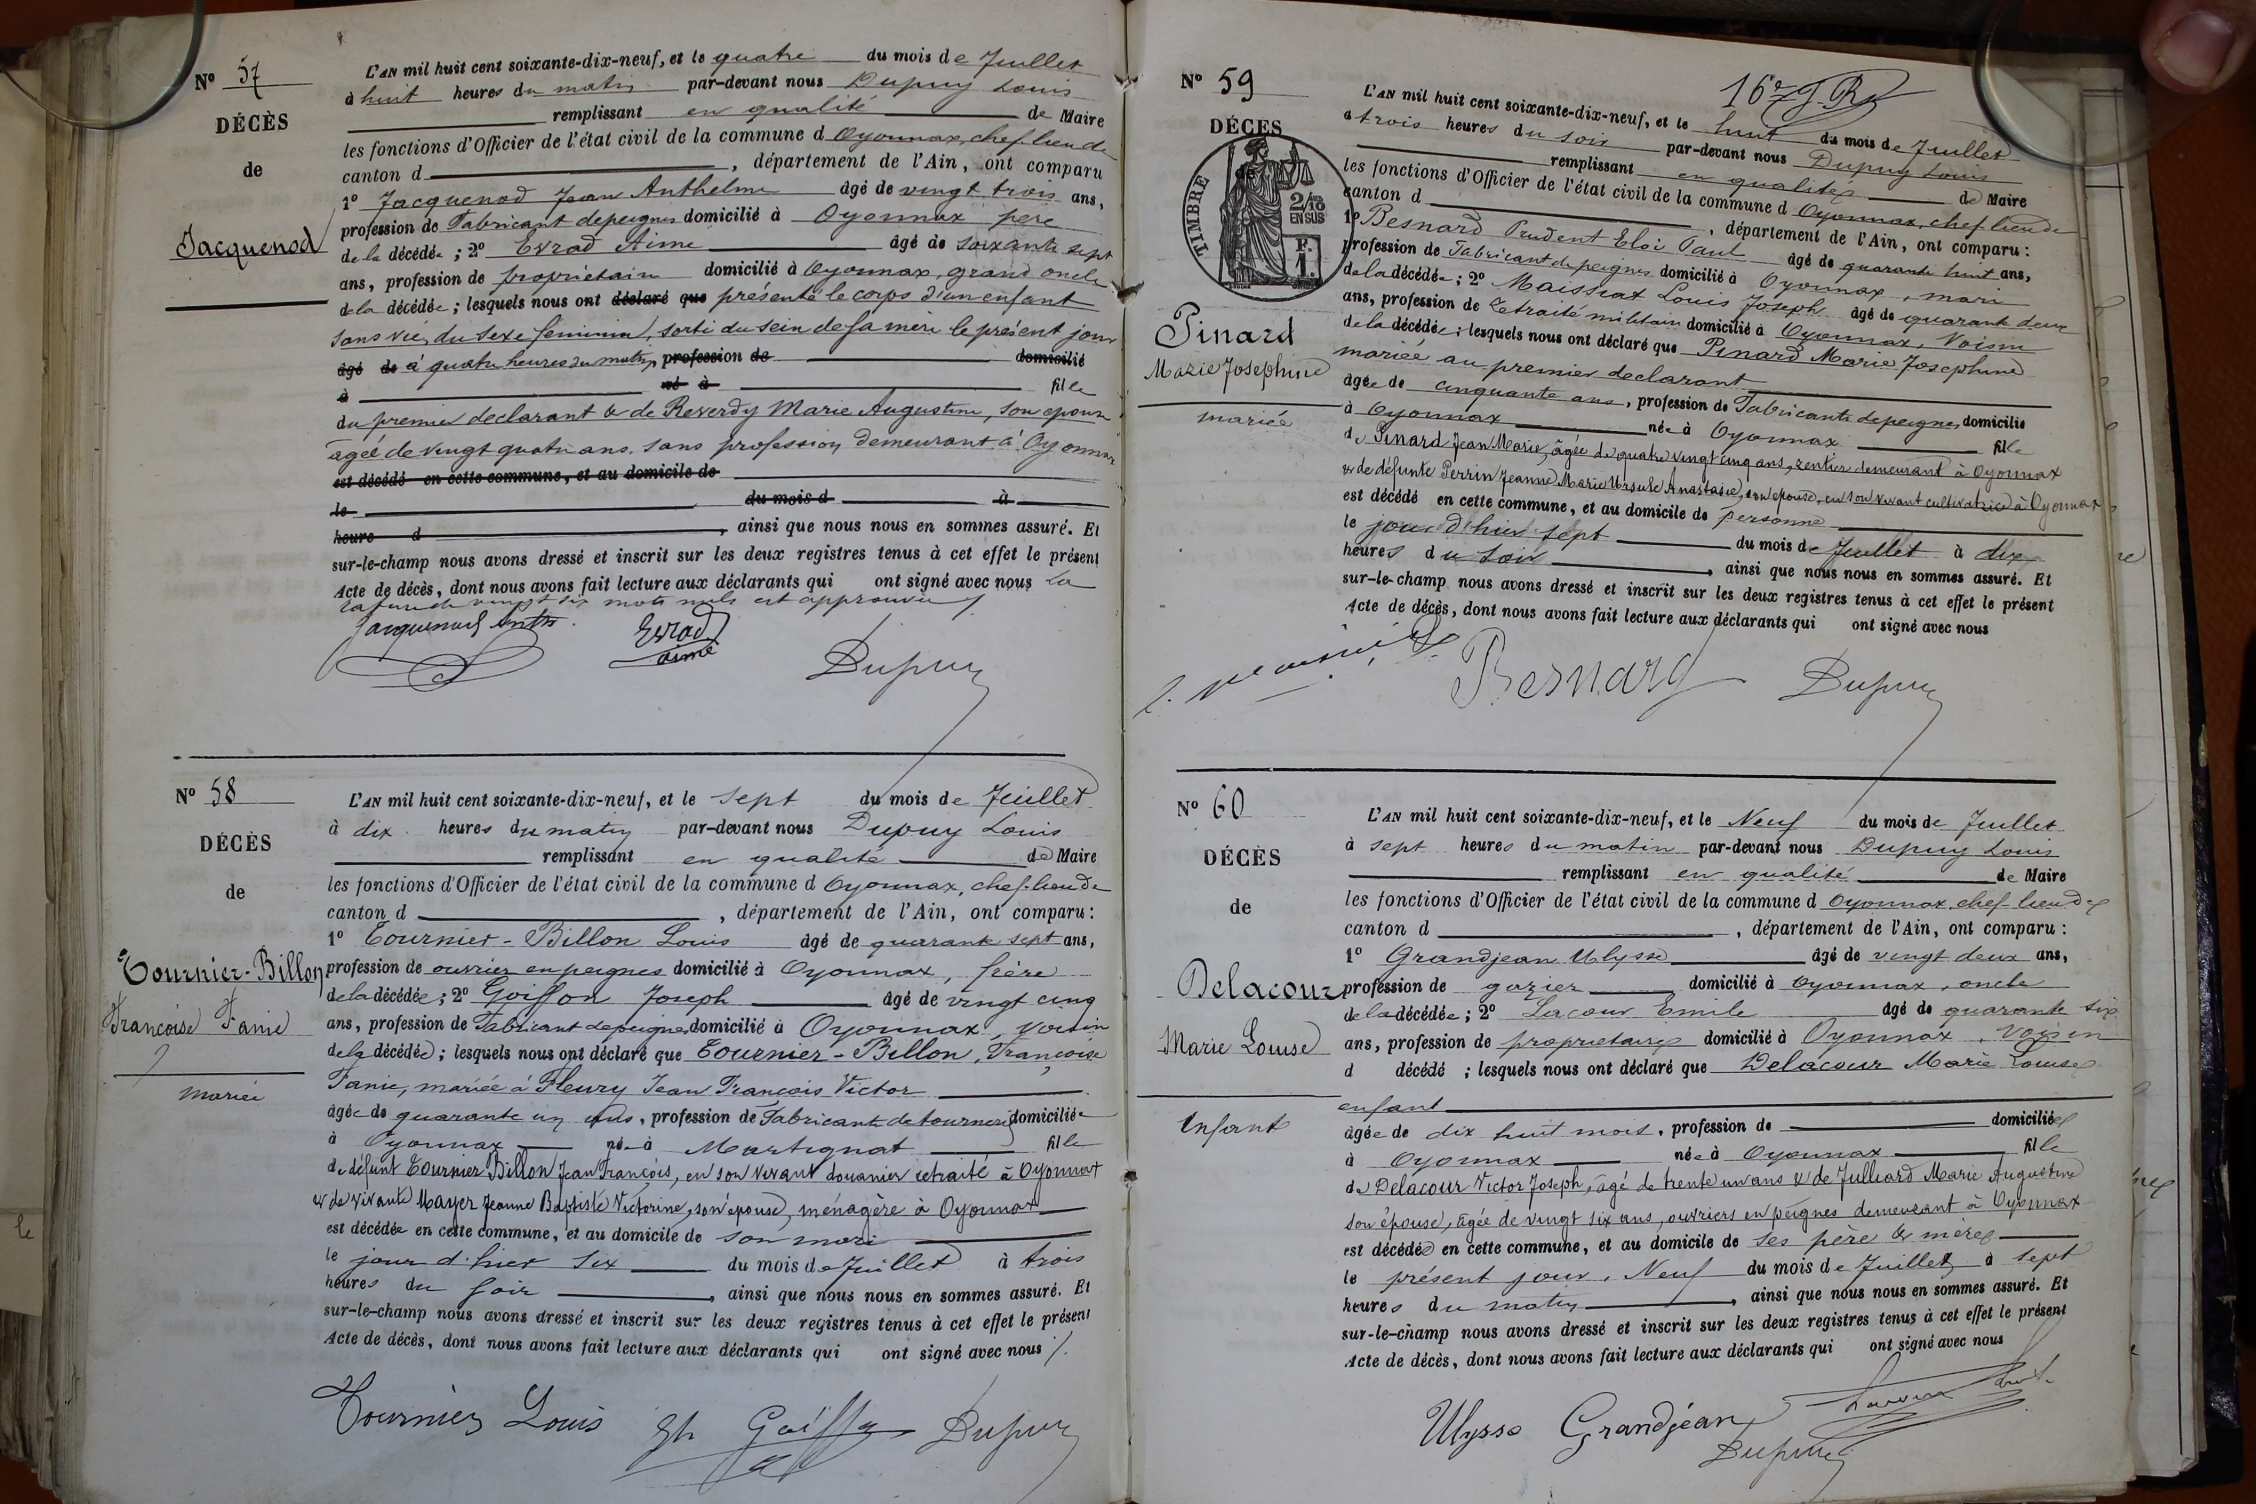 Nº 57
DÉCÈS
de
Jacquenod
L'AN mil huit cent soixante-dix-neuf, et le quatre du mois de Juillet
à huit heures du matin par-devant nous Dupuy Louis
remplissant en qualité de Maire
les fonctions d'Officier de l'état civil de la commune d Oyonnax, chef-lieu de
canton d , département de l'Ain, ont comparu
1º Jacquenod Jean Anthelme âgé de vingt trois ans,
profession de Fabricant de peignes domicilié à Oyonnax père
de la décédée ; 2º Evrad Aimé âgé de soixante sept
ans, profession de propriétaire domicilié à Oyonnax, grand oncle
de la décédée ; lesquels nous ont déclaré que présenté le corps d'un enfant
sans vie, du sexe féminin, sorti du sein de sa mère le présent jour
âgé de à quatre heures du matin, profession de domicilié
à né à fille
du premier déclarant & de Reverdy Marie Augustine, son épouse
âgée de vingt quatre ans, sans profession, demeurant à Oyonnax
est décédé en cette commune, et au domicile de
le du mois d à
heure d , ainsi que nous nous en sommes assuré. Et
sur-le-champ nous avons dressé et inscrit sur les deux registres tenus à cet effet le présent
Acte de décès, dont nous avons fait lecture aux déclarants qui ont signé avec nous La
rature de vingt six mots nuls est approuvée
Jacquenod Anth. Evrad aimé Dupuy
Nº 58
DÉCÈS
de
Tournier-Billon
Françoise Fanie
mariée
L'AN mil huit cent soixante-dix-neuf, et le sept du mois de Juillet
à dix heures du matin par-devant nous Dupuy Louis
remplissant en qualité de Maire
les fonctions d'Officier de l'état civil de la commune d Oyonnax, chef-lieu de
canton d , département de l'Ain, ont comparu :
1º Tournier-Billon Louis âgé de quarante sept ans,
profession de ouvrier en peignes domicilié à Oyonnax, frère
de la décédée ; 2º Goiffon Joseph âgé de vingt cinq
ans, profession de Fabricant de peignes domicilié à Oyonnax, voisin
de la décédée ; lesquels nous ont déclaré que Tournier-Billon, Françoise
Fanie, mariée à Fleury Jean François Victor
âgée de quarante un ans, profession de Fabricante de tournerie domiciliée
à Oyonnax née à Martignat fille
de défunt Tournier Billon Jean François, en son vivant douanier retraité à Oyonnax
& de vivante Mayer Jeanne Baptiste Victorine, son épouse, ménagère à Oyonnax
est décédée en cette commune, et au domicile de son mari
le jour d'hier six du mois de Juillet à trois
heures du soir , ainsi que nous nous en sommes assuré. Et
sur-le-champ nous avons dressé et inscrit sur les deux registres tenus à cet effet le présent
Acte de décès, dont nous avons fait lecture aux déclarants qui ont signé avec nous
Tournier Louis Goiffon Dupuy
Nº 59
DÉCÈS
TIMBRE
2/10 EN SUS
F. 1.
Pinard
Marie Josephine
mariée
L'AN mil huit cent soixante-dix-neuf, et le huit du mois de Juillet
à trois heures du soir par-devant nous Dupuy Louis
remplissant en qualité de Maire
les fonctions d'Officier de l'état civil de la commune d Oyonnax, chef-lieu de
canton d , département de l'Ain, ont comparu :
1º Besnard Prudent Eloi Paul âgé de quarante huit ans,
profession de Fabricant de peignes domicilié à Oyonnax, mari
de la décédée ; 2º Maissiat Louis Joseph âgé de quarante deux
ans, profession de retraité militaire domicilié à Oyonnax, voisin
de la décédée ; lesquels nous ont déclaré que Pinard Marie Josephine
mariée au premier déclarant
âgée de cinquante ans, profession de Fabricante de peignes domicilié
à Oyonnax née à Oyonnax fille
de Pinard Jean Marie, âgée de quatre vingt cinq ans, rentier demeurant à Oyonnax
& de défunte Perrin Jeanne Marie Ursule Anastasie, son épouse, en son vivant cultivatrice à Oyonnax
est décédé en cette commune, et au domicile de personne
le jour d'hier sept du mois de Juillet à dix
heures du soir , ainsi que nous nous en sommes assuré. Et
sur-le-champ nous avons dressé et inscrit sur les deux registres tenus à cet effet le présent
Acte de décès, dont nous avons fait lecture aux déclarants qui ont signé avec nous
Besnard Dupuy
Nº 60
DÉCÈS
de
Delacour
Marie Louise
Enfant
L'AN mil huit cent soixante-dix-neuf, et le Neuf du mois de Juillet
à sept heures du matin par-devant nous Dupuy Louis
remplissant en qualité de Maire
les fonctions d'Officier de l'état civil de la commune d Oyonnax, chef-lieu de
canton d , département de l'Ain, ont comparu :
1º Grandjean Ulysse âgé de vingt deux ans,
profession de gazier domicilié à Oyonnax, oncle
de la décédée ; 2º Lacour Emile âgé de quarante six
ans, profession de propriétaire domicilié à Oyonnax, voisin
d décédé ; lesquels nous ont déclaré que Delacour Marie Louise
enfant
âgée de dix huit mois, profession de domiciliée
à Oyonnax née à Oyonnax fille
de Delacour Victor Joseph, âgé de trente un ans & de Julliard Marie Augustine
son épouse, âgée de vingt six ans, ouvriers en peignes demeurant à Oyonnax
est décédée en cette commune, et au domicile de ses père & mère
le présent jour, Neuf du mois de Juillet à sept
heures du matin , ainsi que nous nous en sommes assuré. Et
sur-le-champ nous avons dressé et inscrit sur les deux registres tenus à cet effet le présent
Acte de décès, dont nous avons fait lecture aux déclarants qui ont signé avec nous
Ulysse Grandjean
Dupuy